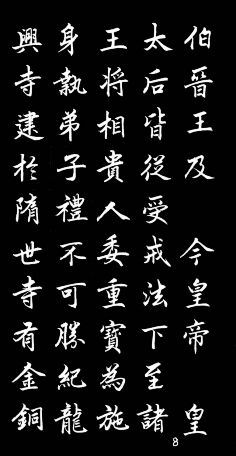 伯晉王及　今皇帝　皇
太后皆從受戒法下至諸
王将相貴人委重寶為施
身執弟子禮不可勝紀龍
興寺建於隋世寺有金銅
8